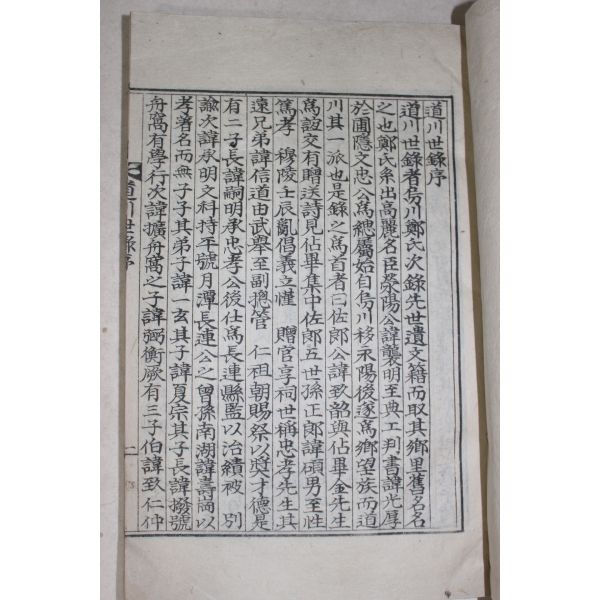 道川世錄序
道川世錄者烏川鄭氏次錄先世遺文籍而取其鄉里舊名名
之也鄭氏系出高麗名臣滎陽公諱襲明至典工判書諱光厚
於圃隱文忠公爲緦屬始自烏川移永陽後遂爲鄉望族而道
川其一派也是錄之爲首者曰佐郎公諱致韶與佔畢金先生
爲誼交有贈送詩見佔畢集中佐郎五世孫正郎諱碩男至性
篤孝 穆陵壬辰亂倡義立慬 贈官享祠世稱忠孝先生其
遠兄弟諱信道由武舉至副摠管 仁祖朝賜祭以奬才德是
有二子長諱嗣明承忠孝公後仕爲長連縣監以治績被 別
諭次諱承明文科持平號月潭長連公之曾孫南湖諱壽崗以
孝著名而無子子其弟子諱一玄其子諱夏宗其子長諱撥號
舟窩有學行次諱擴舟窩之子諱弼衡厥有三子伯諱致仁仲
道川世錄序
一